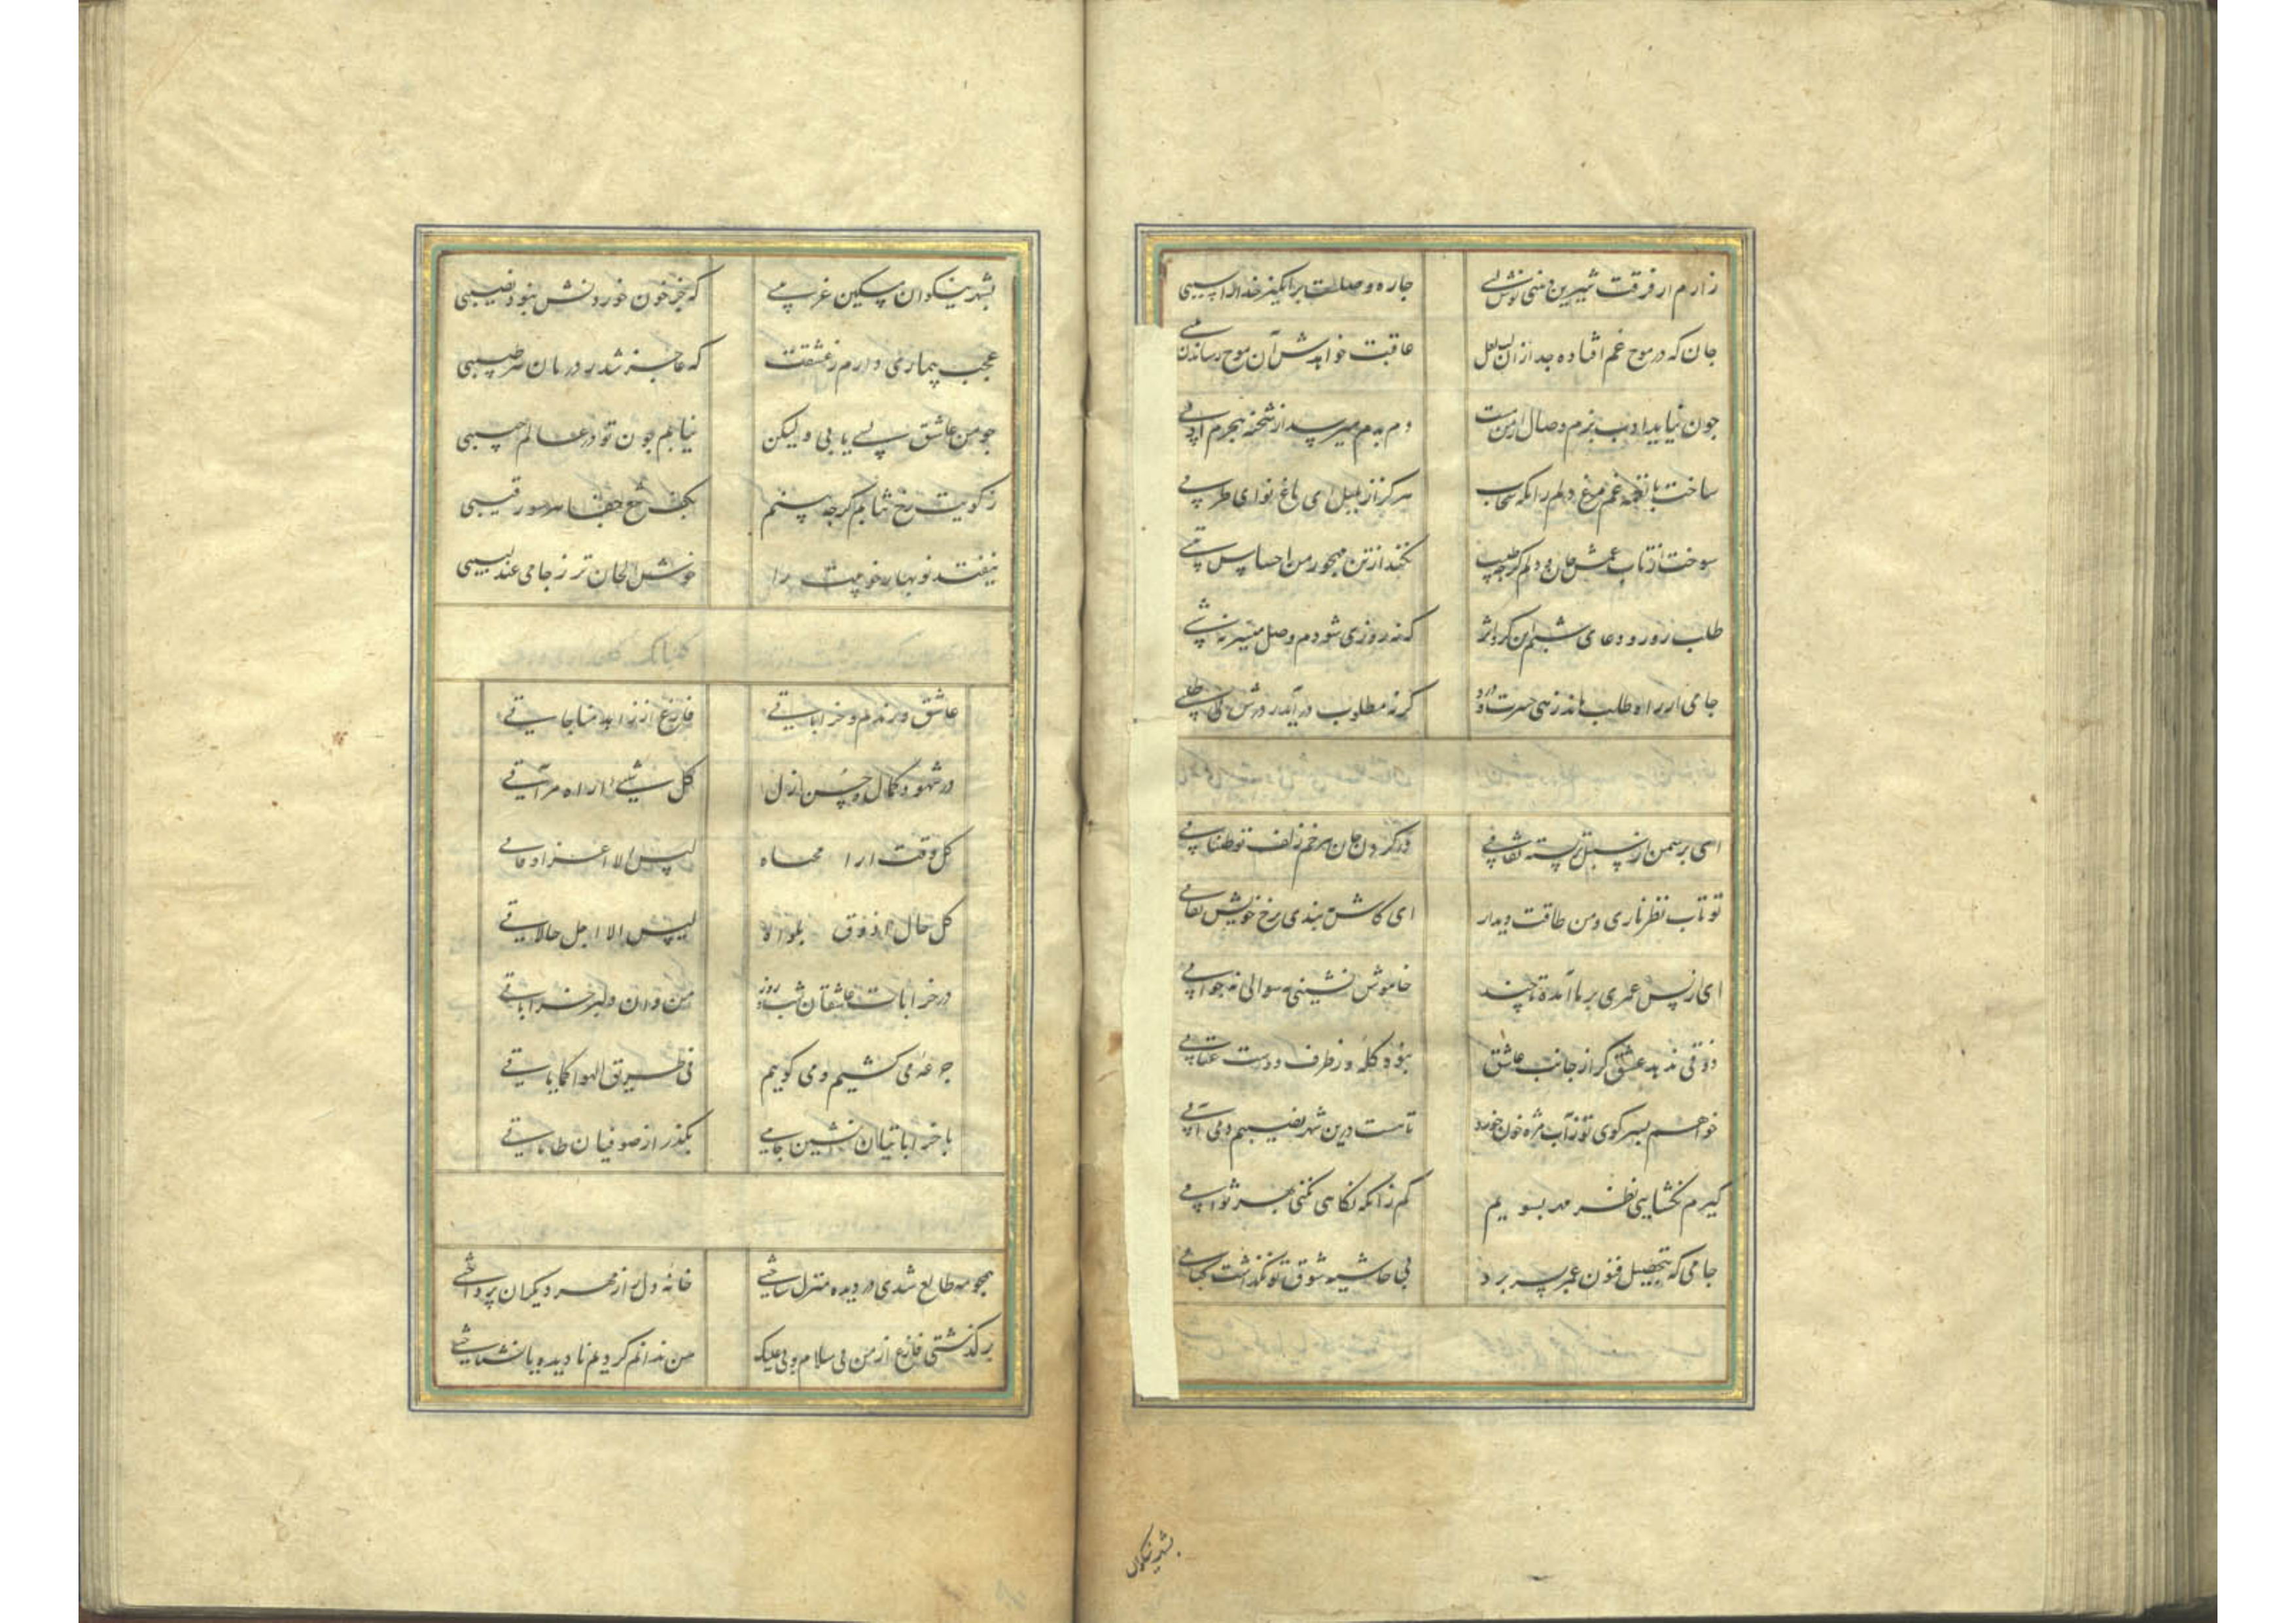 زارم از فرقت شیرین دهنی نوش لبی چاره وصلست برانگیز خدا را سببی
جان که در موج غم افتاده جدا از آن لب لعل عاقبت خواهدش آن موج رساندن بلبی
چون نیاید ادب بزم وصال از من مست دم بدم میرسد از شحنه هجرم ادبی
ساخت با نغمه غم مرغ دلم زانکه نخاست هرگز از بلبل این باغ نوای طربی
سوخت از تاب غمش جان و دلم گرچه طبیب نکند از تن مهجور من احساس تبی
طلب روز و دعای شبم آن کرد اثر که نه روزی شودم وصل میسر نه شبی
جامی ار راه طلب ماند زهی حسرت و درد گر نه مطلوب درآید ز درش بی طلبی
ای بر سمن از سنبل تر بسته نقابی در گردن جان هر خم زلف تو طنابی
تو تاب نظر ناری و من طاقت دیدار ای کاش ببندی برخ خویش نقابی
ای از پس عمری بر ما آمده تا چند خاموش نشینی نه سوالی نه جوابی
ذوقی ندهد عشق گر از جانب عاشق نبود گله وز طرف دوست عتابی
خواهم بسر کوی تو زآب مژه خون خورد تا هست درین شهر نصیبم دمی آبی
گیرم نگشایی نظر مهر بسویم کم زانکه نگاهی نکنی بهر ثوابی
جامی که بتحصیل فنون عمر بسر برد بی حاشیه شوق تو نگذاشت کتابی
بشهر نیکوان
بشهر نیکوان مسکین غریبی که جز خون خوردنش نبود نصیبی
عجب بیماری دارم ز عشقت که عاجز شد ز درمان هر طبیبی
چو من عاشق بسی یابی ولیکن نیابم چون تو در عالم حبیبی
ز کویت رخ نتابم گرچه بینم بکف تیغ جفا هر سو رقیبی
نیفتد نوبهار خرمیت را خوش الحان تر ز جامی عندلیبی
عاشق و رندم و خراباتی فارغ از زاهد مناجاتی
در شهود کمال و حسن ازل کل شیء اراه مرآتی
کل وقت ارا محیاه لیس الا اعز اوقاتی
کل حال اذوق بلواه لیس الا اجل حالاتی
در خرابات عاشقان شب و روز من و آن دلبر خراباتی
جرعه می کشیم و می گوییم فی طریق الهوا کما یاتی
با خراباتیان نشین جامی بگذر از صوفیان طاماتی
همچو مه طالع شدی در دیده منزل ساختی خانه دل از مهر دیگران پرداختی
برگذشتی فارغ از من بی سلام و بی علیک من ندانم کردیم نادیده یا نشناختی